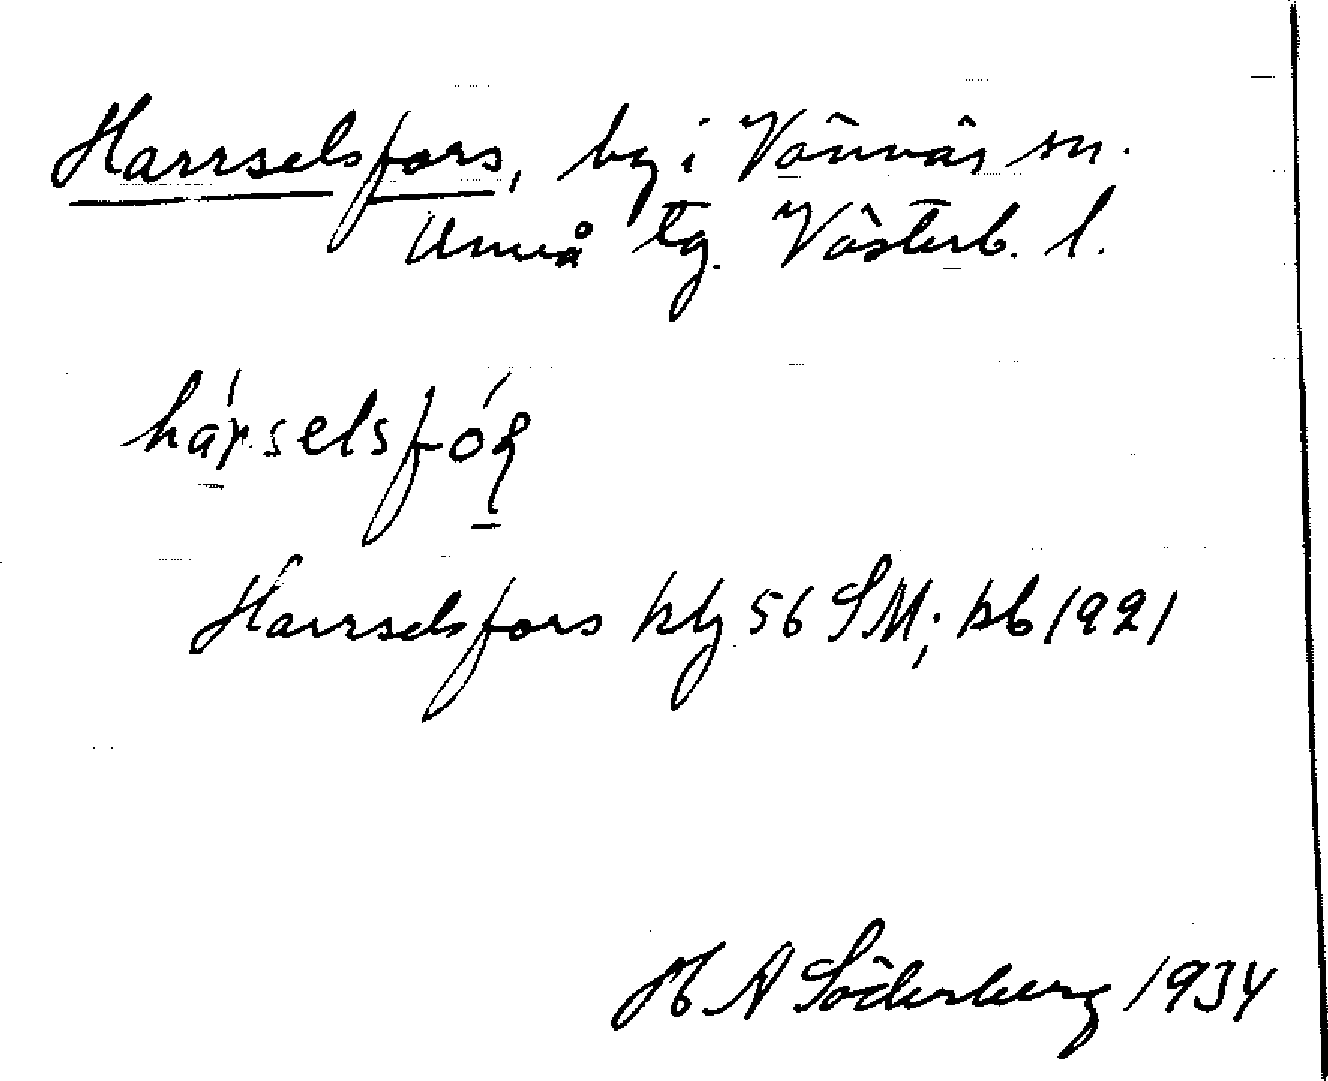 Harrselsfors, by i Vännäs sn.
Umeå tg. Västerb. l.
hárselsfóʂ
Harrselsfors hlg 56 SM; kb 1921
H A Söderberg 1934